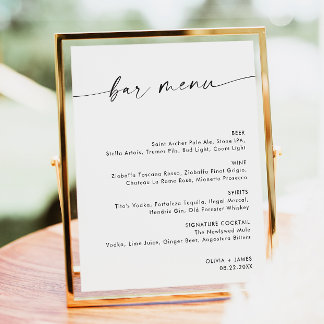 bar menu
BEER
Saint Archer Pale Ale, Stone IPA,
Stella Artois, Tremer Pils, Bud Light, Coors Light
WINE
Ziobaffa Toscana Rosso, Ziobaffa Pinot Grigio,
Chateau La Rame Rose, Mionetto Prosecco
SPIRITS
Tito's Vodka, Fortaleza Tequila, Ilegal Mezcal,
Hendric Gin, Old Forrester Whiskey
SIGNATURE COCKTAIL
The Newlywed Mule
Vodka, Lime Juice, Ginger Beer, Angostera Bitters
OLIVIA + JAMES
08.22.20XX